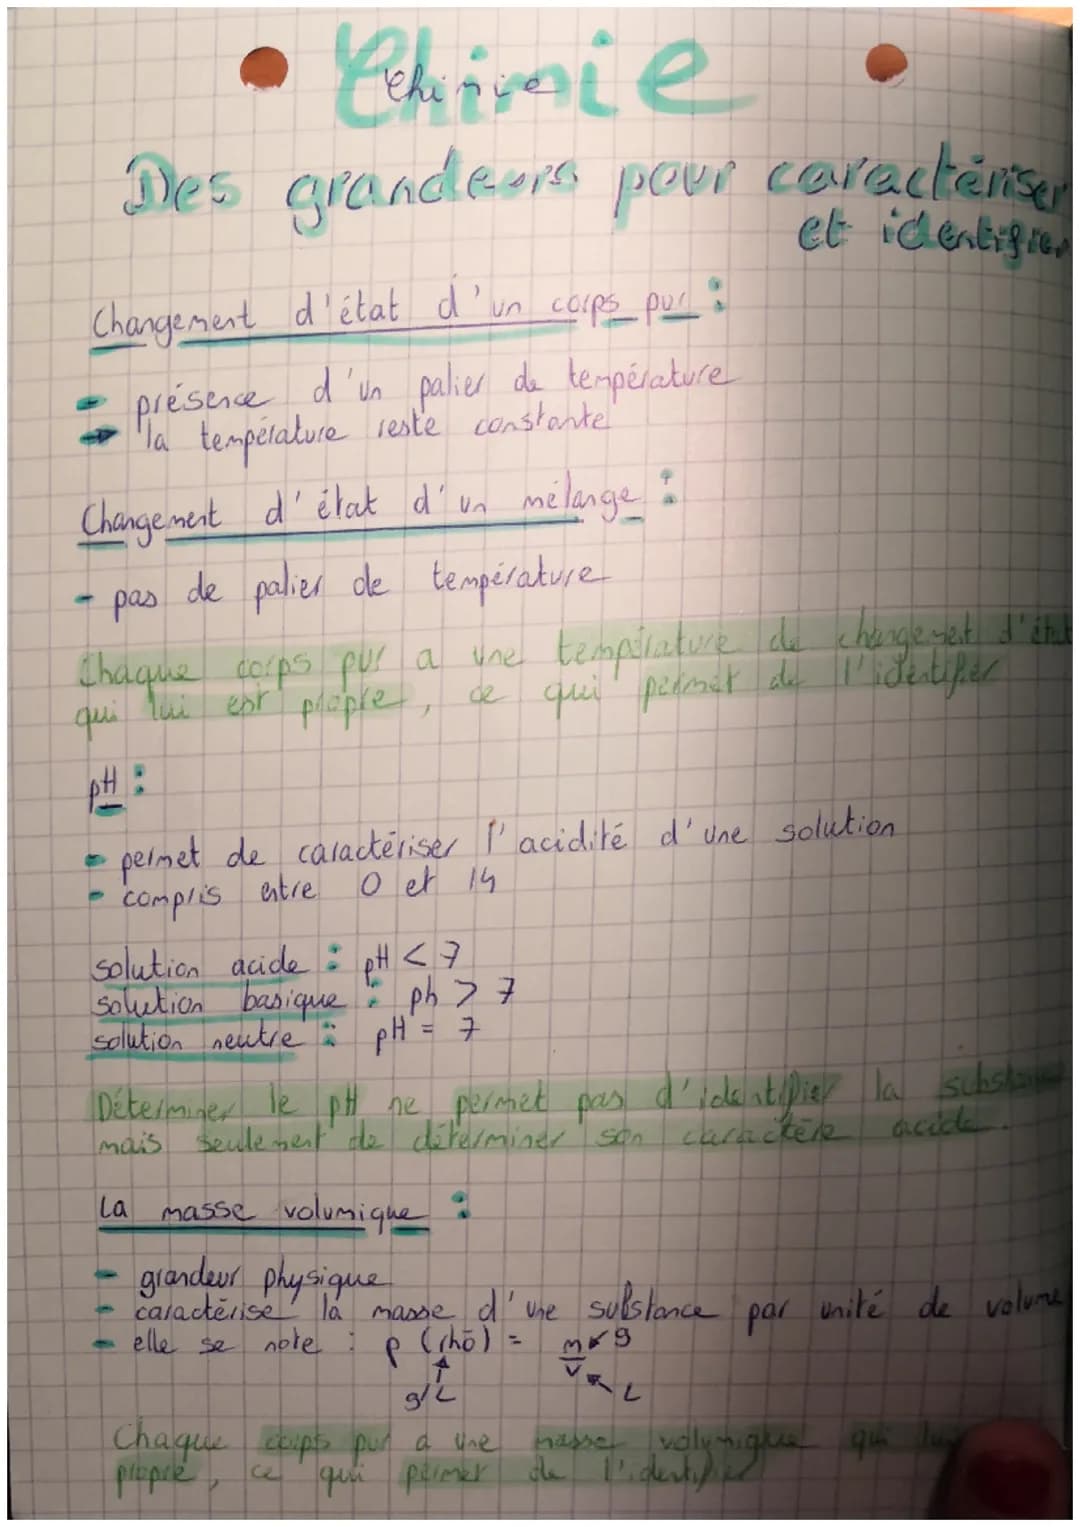 Chimie
Chimie
Des grandeurs pour caractériser
et identifier
Changement d'état d'un corps pur :
- présence d'un palier de température
→ la température reste constante
Changement d'état d'un mélange :
- pas de palier de température
Chaque corps pur a une température de changement d'état
qui lui est propre, ce qui permet de l'identifier
pH :
- permet de caractériser l'acidité d'une solution
- compris entre 0 et 14
solution acide : pH < 7
solution basique : ph > 7
solution neutre : pH = 7
Déterminer le pH ne permet pas d'identifier la substance
mais seulement de déterminer son caractère acide.
La masse volumique :
- grandeur physique
- caractérise la masse d'une substance par unité de volume
- elle se note : ρ (rhō) = m g
V L
g/L
Chaque corps pur a une masse volumique qui lui
propre, ce qui permet de l'identifier